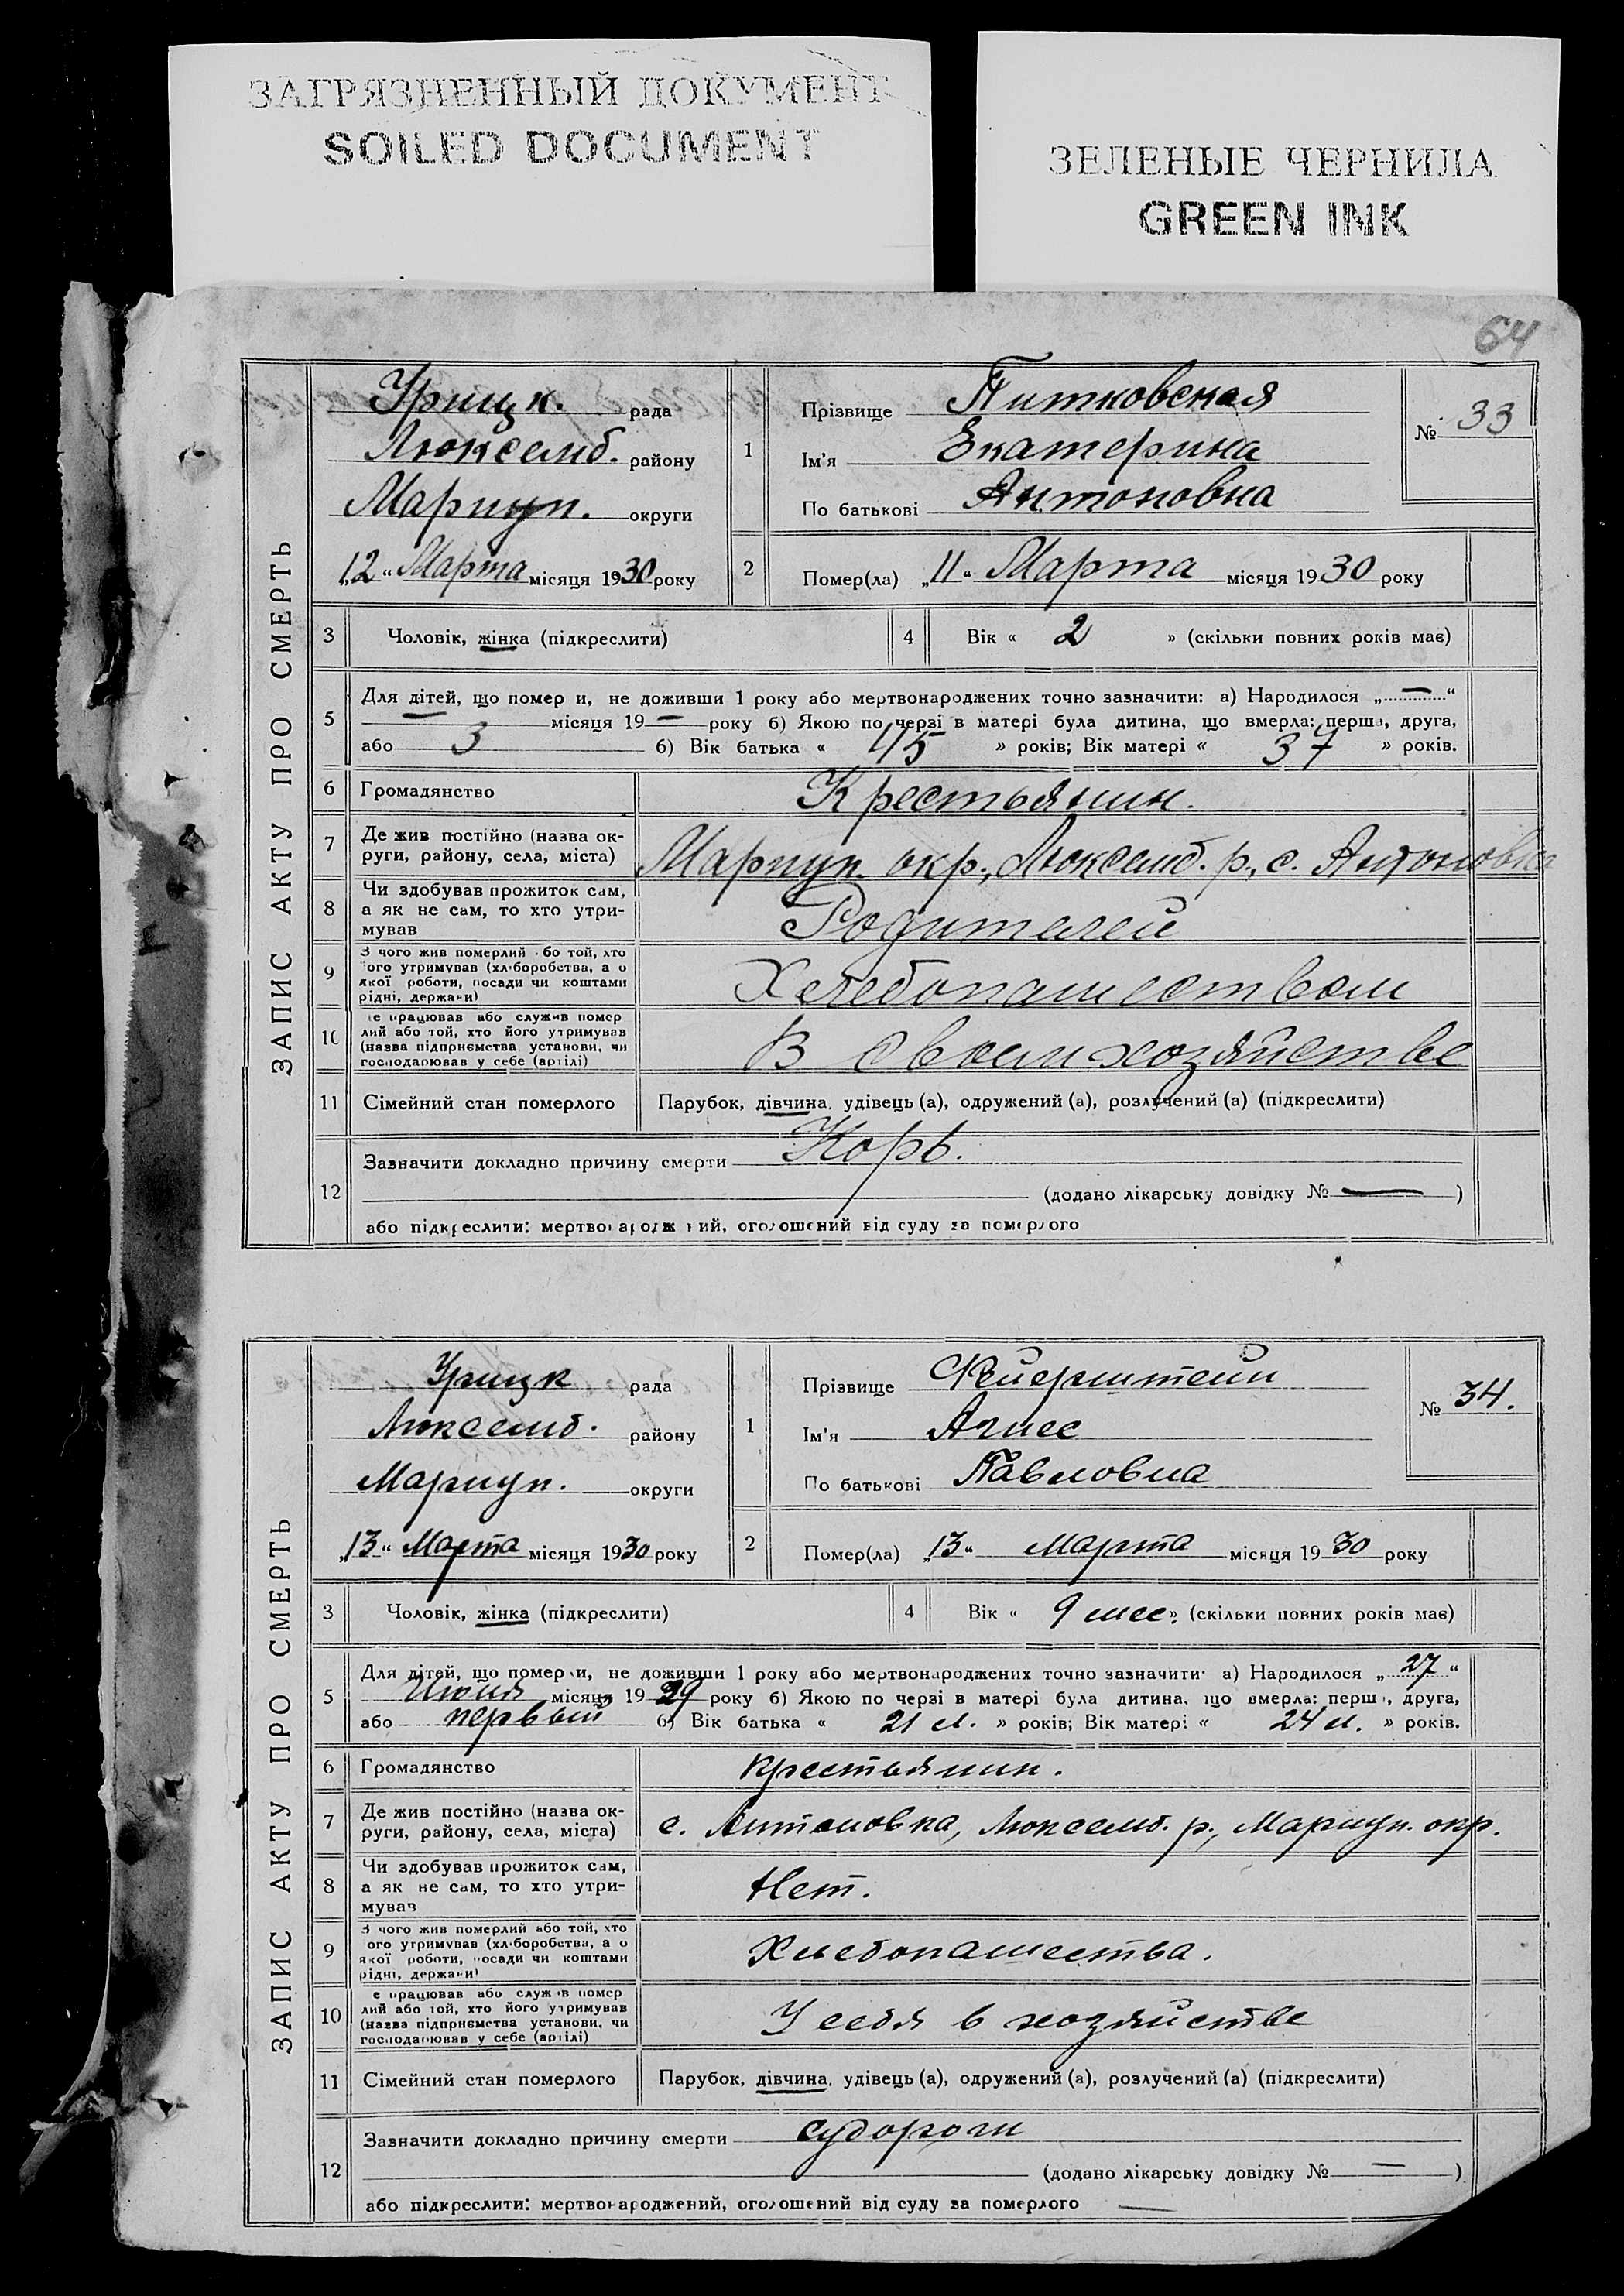 ЗАГРЯЗНЕННЫЙ ДОКУМЕНТ
SOILED DOCUMENT
ЗЕЛЕНЫЕ ЧЕРНИЛА
GREEN INK
64
ЗАПИС АКТУ ПРО СМЕРТЬ
Урицк. рада
Люксемб. району
Мариуп. округи
„12“ Марта місяця 1930 року
1
Прізвище Питковская
Ім'я Екатерина
По батькові Антоновна
№ 33
2 Помер(ла) „11“ Марта місяця 1930 року
3 Чоловік, жінка (підкреслити)
4 Вік « 2 » (скільки повних років має)
5 Для дітей, що помер и, не доживши 1 року або мертвонароджених точно зазначити: а) Народилося „—“
— місяця 19 — року б) Якою по черзі в матері була дитина, що вмерла: перша, друга,
або 3 б) Вік батька « 45 » років; Вік матері « 37 » років.
6 Громадянство Крестьянин.
7 Де жив постійно (назва ок-
руги, району, села, міста) Мариуп. окр., Люксемб. р., с. Антоновка
8 Чи здобував прожиток сам,
а як не сам, то хто утри-
мував Родителей
9 З чого жив померлий або той, хто
ого утримував (хліборобства, а о
якої роботи, посади чи коштами
рідні, держави) Хлебопашеством
10 е працював або служив помер
лий або той, хто його утримував
(назва підприємства, установи, чи
господарював у себе (артілі) В своем хозяйстве
11 Сімейний стан померлого Парубок, дівчина, удівець (а), одружений (а), розлучений (а) (підкреслити)
12 Зазначити докладно причину смерти Корь.
(додано лікарську довідку № — )
або підкреслити: мертвонароджений, оголошений від суду за померлого
ЗАПИС АКТУ ПРО СМЕРТЬ
Урицк рада
Люксемб. району
Мариуп. округи
„13“ Марта місяця 1930 року
1
Прізвище Фейерштейн
Ім'я Агнес
По батькові Павловна
№ 34.
2 Помер(ла) „13“ Марта місяця 1930 року
3 Чоловік, жінка (підкреслити)
4 Вік « 9 мес». (скільки повних років має)
5 Для дітей, що померли, не доживши 1 року або мертвонароджених точно зазначити: а) Народилося „27“
Июня місяця 1929 року б) Якою по черзі в матері була дитина, що вмерла: перша, друга,
або первый б) Вік батька « 21 л. » років; Вік матері « 24 л. » років.
6 Громадянство крестьянин.
7 Де жив постійно (назва ок-
руги, району, села, міста) с. Антоновка, Люксемб. р., Мариуп. окр.
8 Чи здобував прожиток сам,
а як не сам, то хто утри-
мував Нет.
9 З чого жив померлий або той, хто
ого утримував (хліборобства, а о
якої роботи, посади чи коштами
рідні, держави) Хлебопашества.
10 е працював або служив помер
лий або той, хто його утримував
(назва підприємства установи, чи
господарював у себе (артілі) У себя в хозяйстве
11 Сімейний стан померлого Парубок, дівчина, удівець (а), одружений (а), розлучений (а) (підкреслити)
12 Зазначити докладно причину смерти судороги
(додано лікарську довідку № — )
або підкреслити: мертвонароджений, оголошений від суду за померлого —